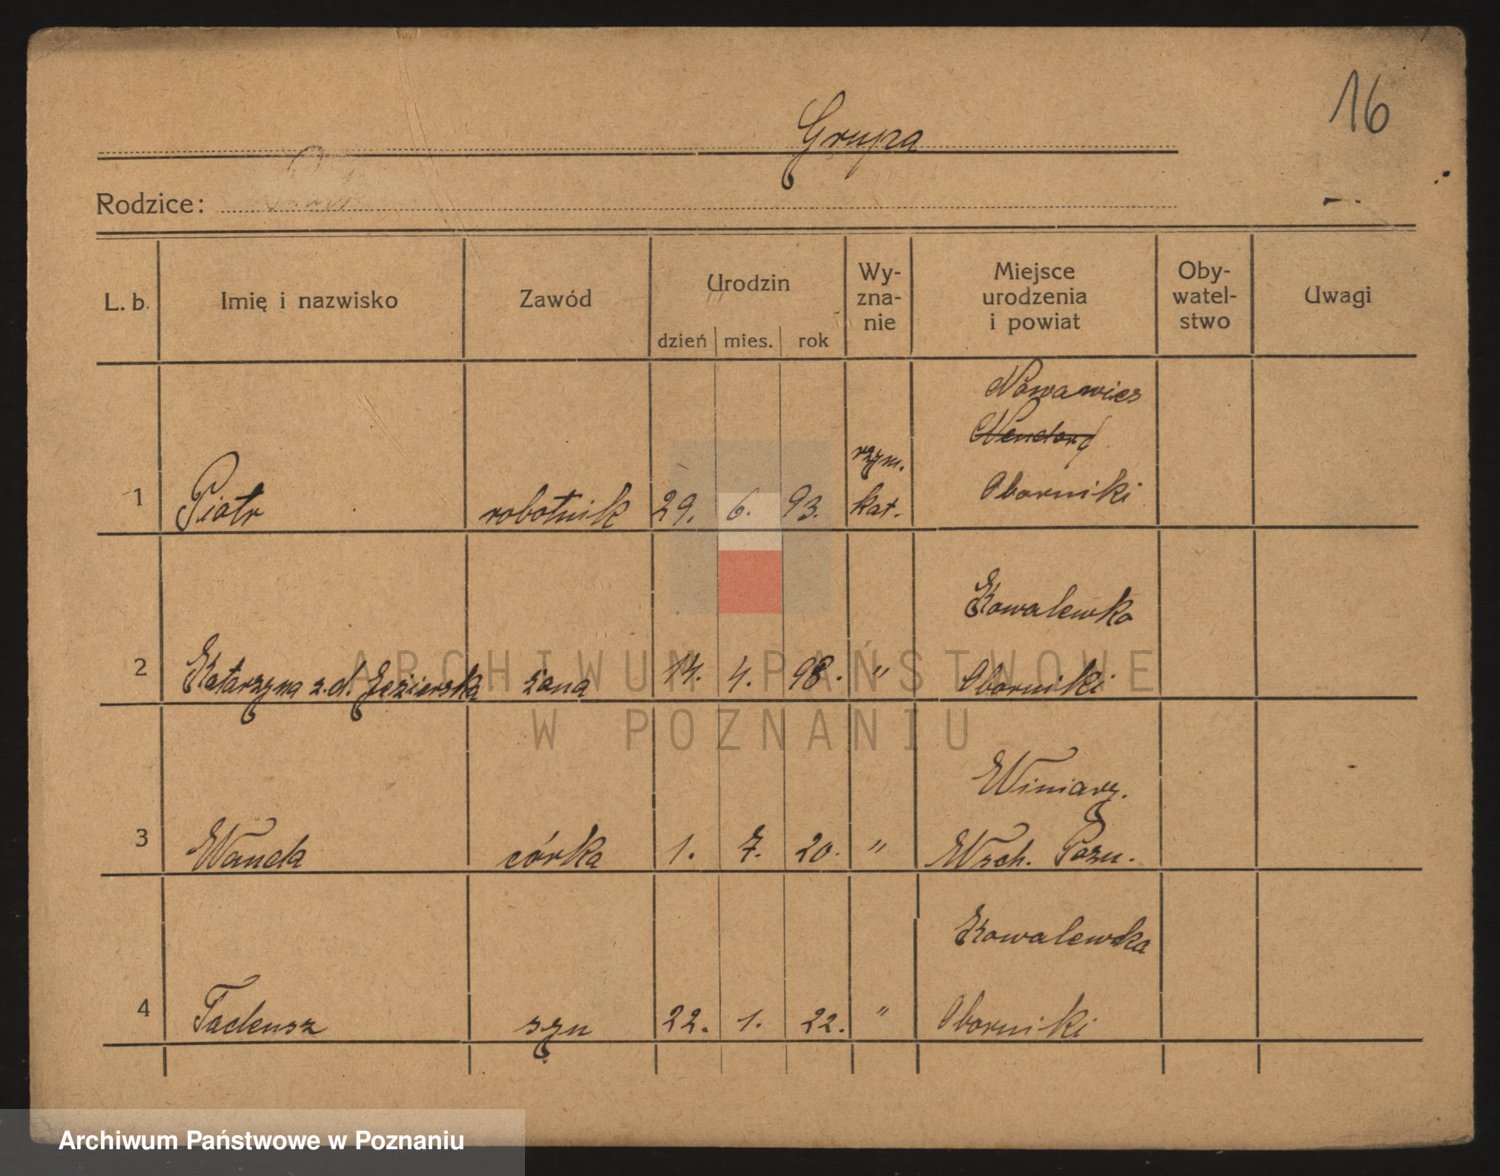 16
Grupa
Rodzice:
L. b. Imię i nazwisko Zawód Urodzin dzień mies. rok Wy-zna-nie Miejsce urodzenia i powiat Oby-watel-stwo Uwagi
Nowawieś
Neudorf
1 Piotr robotnik 29. 6. 93. rzym. kat. Oborniki
Kowalewko
2 Katarzyna z.d. Jezierska żona 14. 4. 98. " Oborniki
ARCHIWUM PAŃSTWOWE
W POZNANIU
Winiary.
3 Wanda córka 1. 7. 20. " Wsch. Pozn.
Kowalewka
4 Tadeusz syn 22. 1. 22. " Oborniki
Archiwum Państwowe w Poznaniu